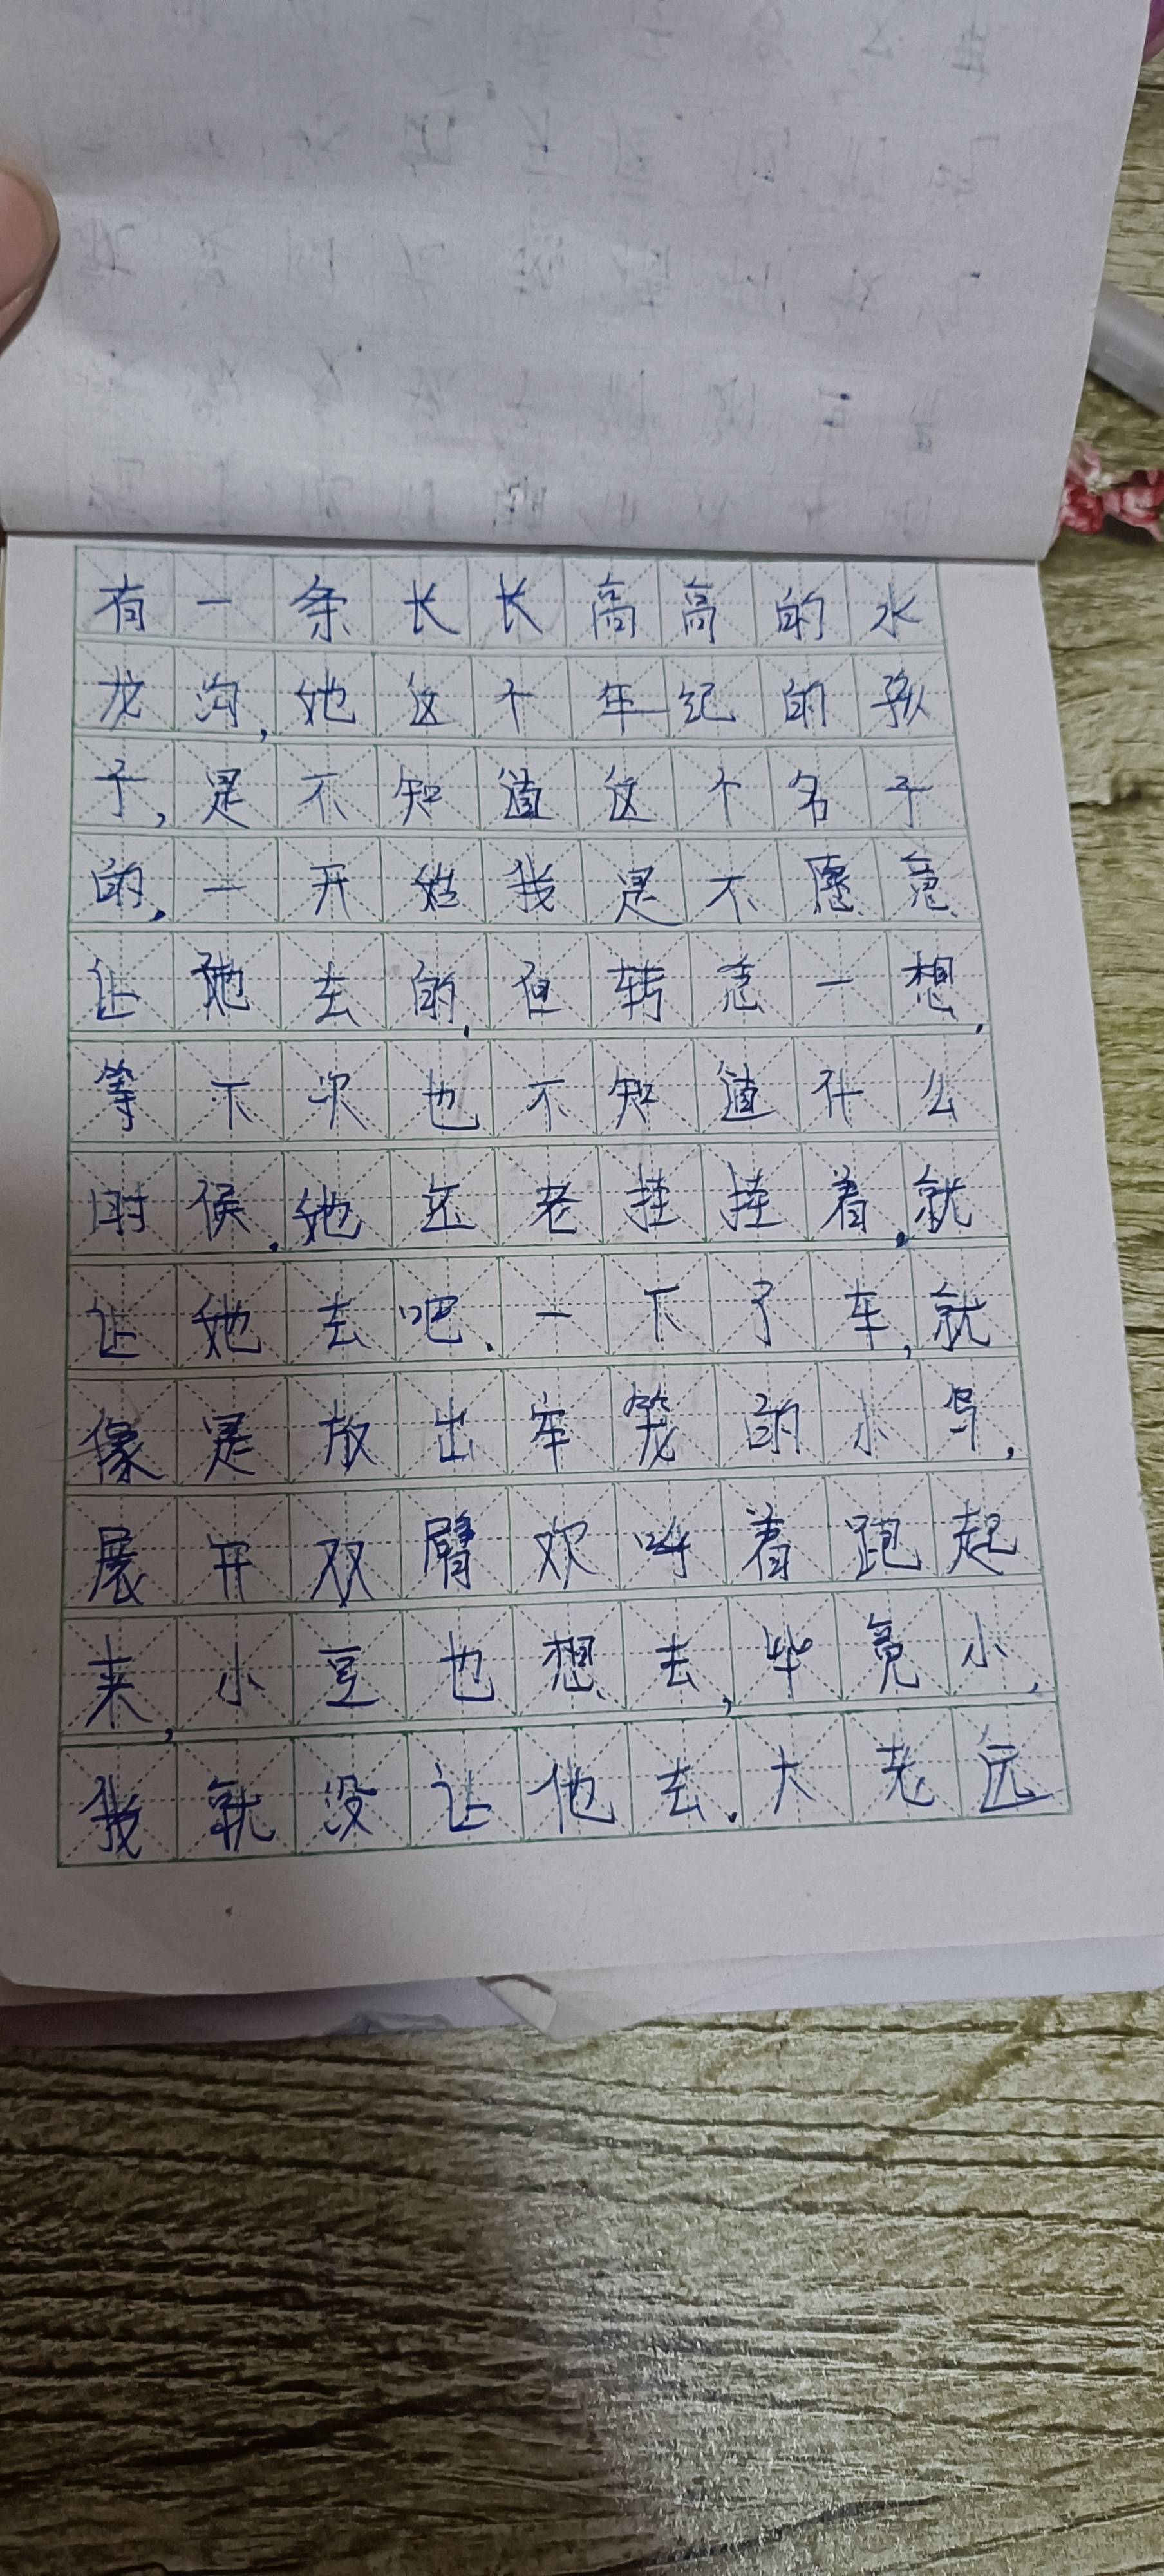 有一条长长高高的水
龙沟,她这个年纪的孩
子,是不知道这个名子
的,一开始我是不愿意
让她去的,但转念一想,
等下次也不知道什么
时候,她还老挂挂着,就
让她去吧、一下了车,就
像是放出牢笼的小鸟,
展开双臂欢呼着跑起
来,小豆也想去,毕竟小,
我就没让他去.大老远